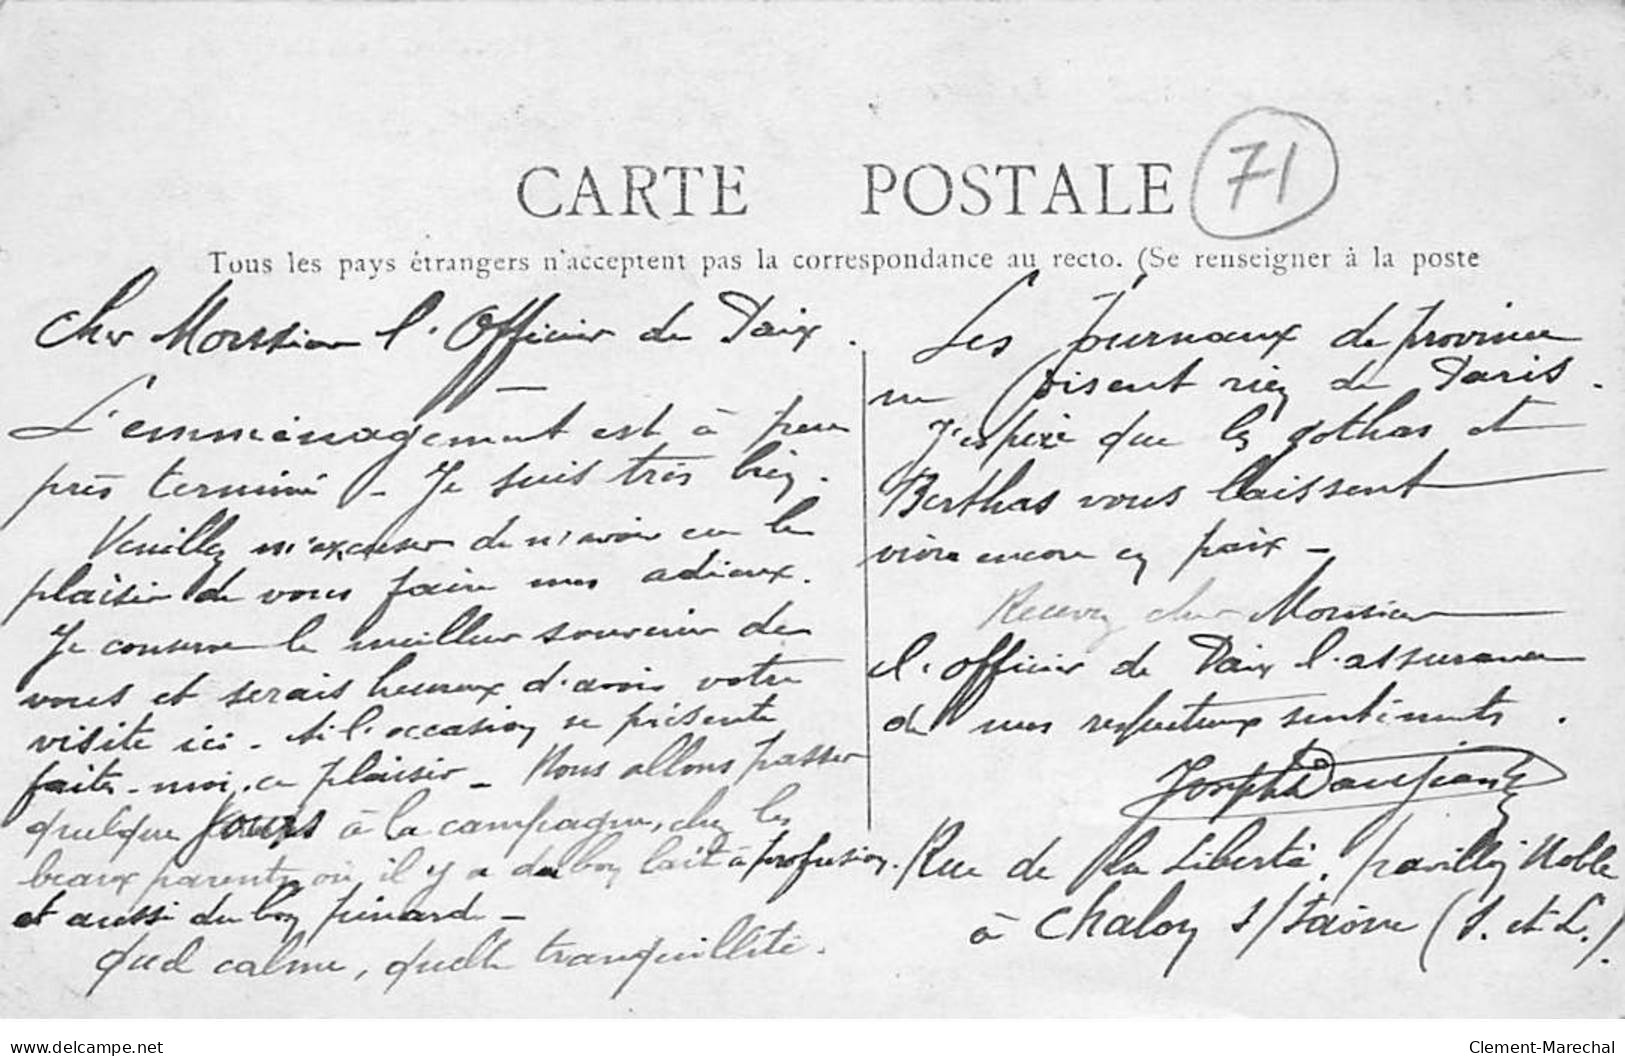 CARTE POSTALE
71
Tous les pays étrangers n'acceptent pas la correspondance au recto. (Se renseigner à la poste
Cher Monsieur l'Officier de Paix.
L'emménagement est à peu
près terminé - Je suis très bien.
Veuillez m'excuser de n'avoir eu le
plaisir de vous faire mes adieux.
Je conserve le meilleur souvenir de
vous et serais heureux d'avoir votre
visite ici - si l'occasion se présente
faites-moi ce plaisir - Nous allons passer
quelques jours à la campagne, chez les
beaux parents où il y a du bon lait à profusion
et aussi du bon pinard -
Quel calme, quelle tranquillité.
Les Journaux de province
ne disent rien de Paris.
J'espère que les gothas et
Berthas vous laissent
vivre encore en paix -
Recevez cher Monsieur
l'officier de Paix l'assurance
de mes respectueux sentiments.
Joseph
Rue de la Liberté, pavillon Noble
à Chalon s/Saône (S. et L.)
Clement-Marechal
delcampe.net